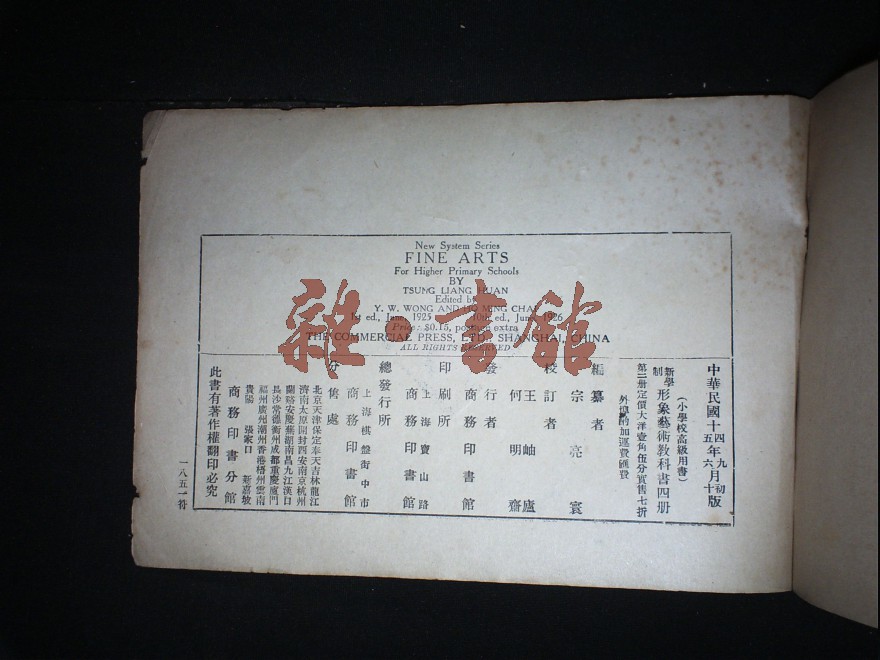 New System Series
FINE ARTS
For Higher Primary Schools
BY
TSUNG LIANG HUAN
Edited by
Y. W. WONG AND HO MING CHAI
1st ed., 1925 10th ed., 1926
Price: $0.15, postage extra
THE COMMERCIAL PRESS, LTD., SHANGHAI, CHINA
ALL RIGHTS RESERVED
雜·書館
中華民國十四年九月初版
五年六月十版
(小學校高級用書)
新學制 形象藝術教科書四册
第二册定價大洋壹角伍分實售七折
外埠酌加運費匯費
編纂者 宗亮寰
校訂者 王岫廬
何明齋
發行者 商務印書館
印刷所 上海寶山路
商務印書館
總發行所 上海棋盤街中市
商務印書館
分售處
北京天津保定奉天吉林龍江
濟南太原開封西安南京杭州
蘭谿安慶蕪湖南昌九江漢口
長沙常德衡州成都重慶廈門
福州廣州潮州香港梧州雲南
貴陽 張家口 新嘉坡
商務印書分館
此書有著作權翻印必究
一八五一符